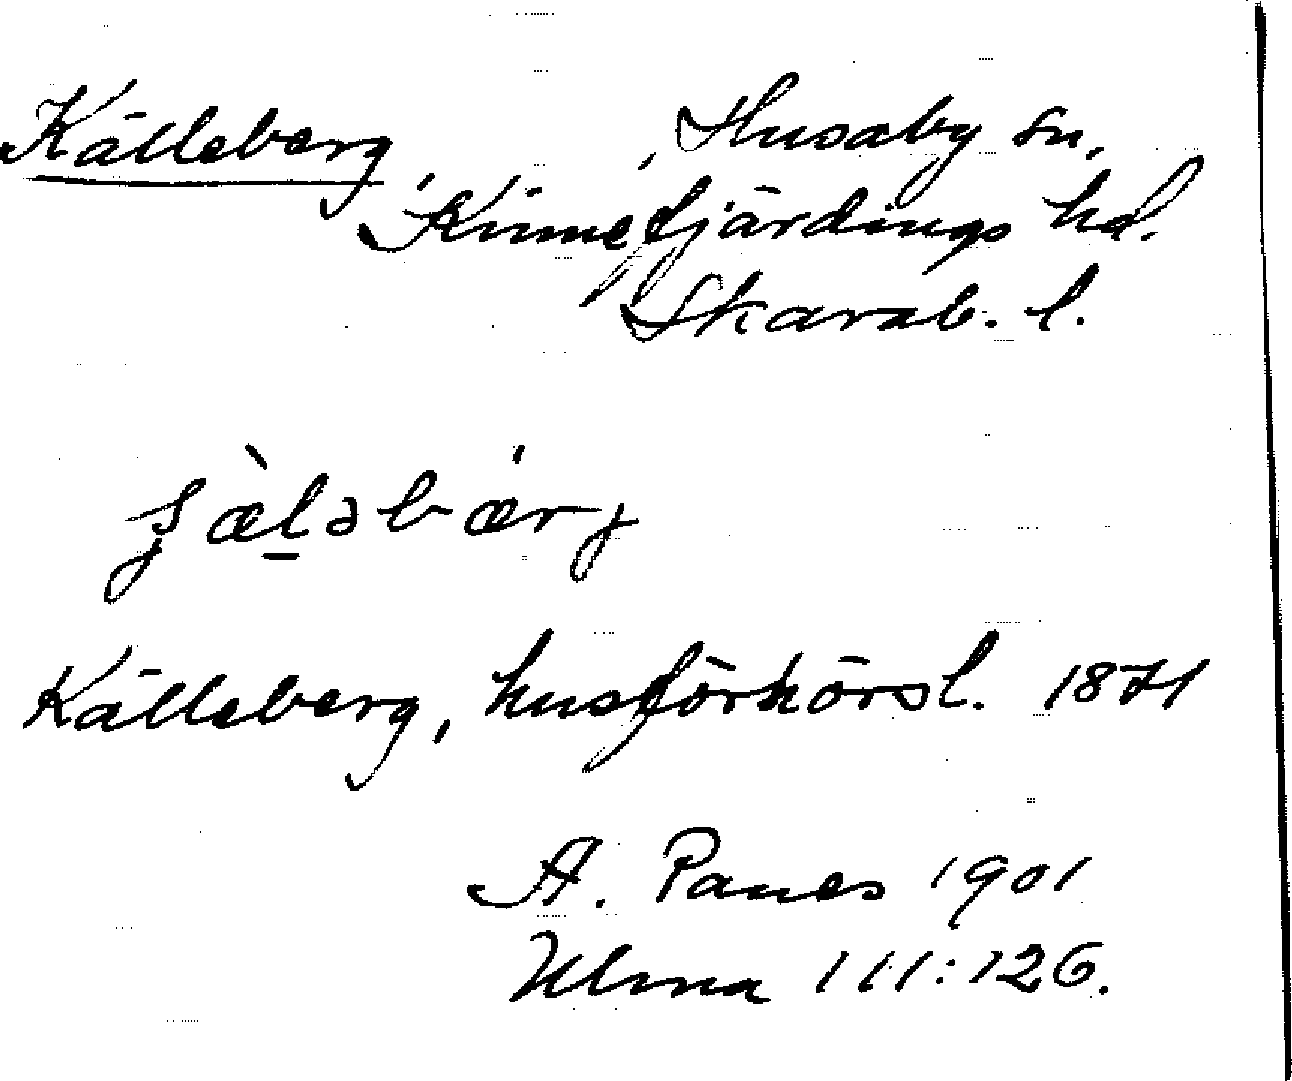 Källeberg, Husaby sn,
Kinnefjärdings hd.
Skarab. l.
Källeberg, husförhörsl. 1871
A. Panes 1901
Ulma 111:126.